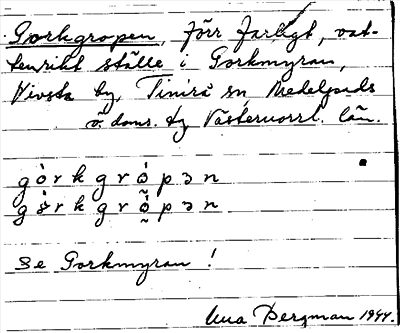 Gorkgropen, förr farligt, vat-
tenrikt ställe i Gorkmyran,
Vivsta by, Timrå sn, Medelpads
ö. doms. tg Västernorrl. län.
gòrkgrópən
gòrkgrópən
Se Gorkmyran!
Una Bergman 1944.